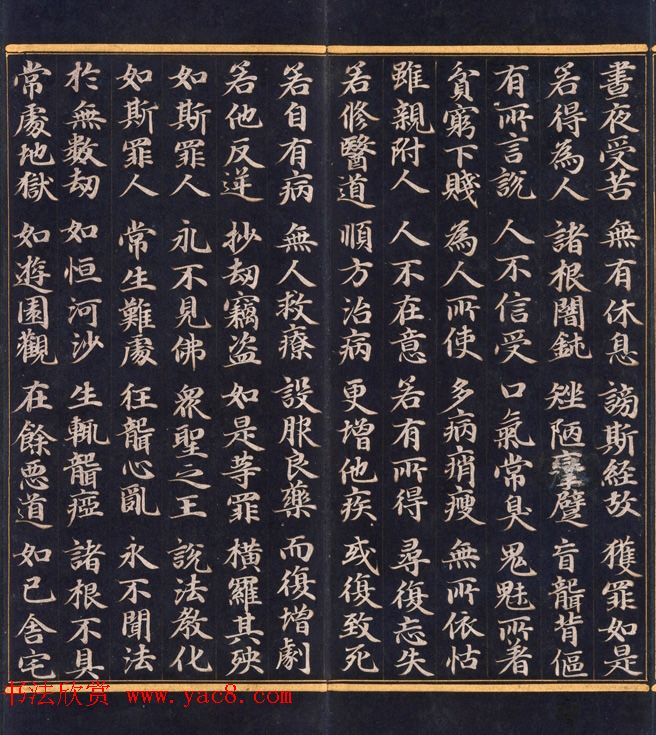 晝夜受苦 無有休息 謗斯經故 獲罪如是
若得為人 諸根闇鈍 矬陋攣躄 盲聾背傴
有所言說 人不信受 口氣常臭 鬼魅所著
貧窮下賤 為人所使 多病痟瘦 無所依怙
雖親附人 人不在意 若有所得 尋復忘失
若修醫道 順方治病 更增他疾 或復致死
若自有病 無人救療 設服良藥 而復增劇
若他反逆 抄劫竊盗 如是等罪 橫羅其殃
如斯罪人 永不見佛 眾聖之王 說法教化
如斯罪人 常生難處 狂聾心亂 永不聞法
於無數劫 如恒河沙 生輒聾瘂 諸根不具
常處地獄 如遊園觀 在餘惡道 如己舍宅
书法欣赏 www.yac8.com